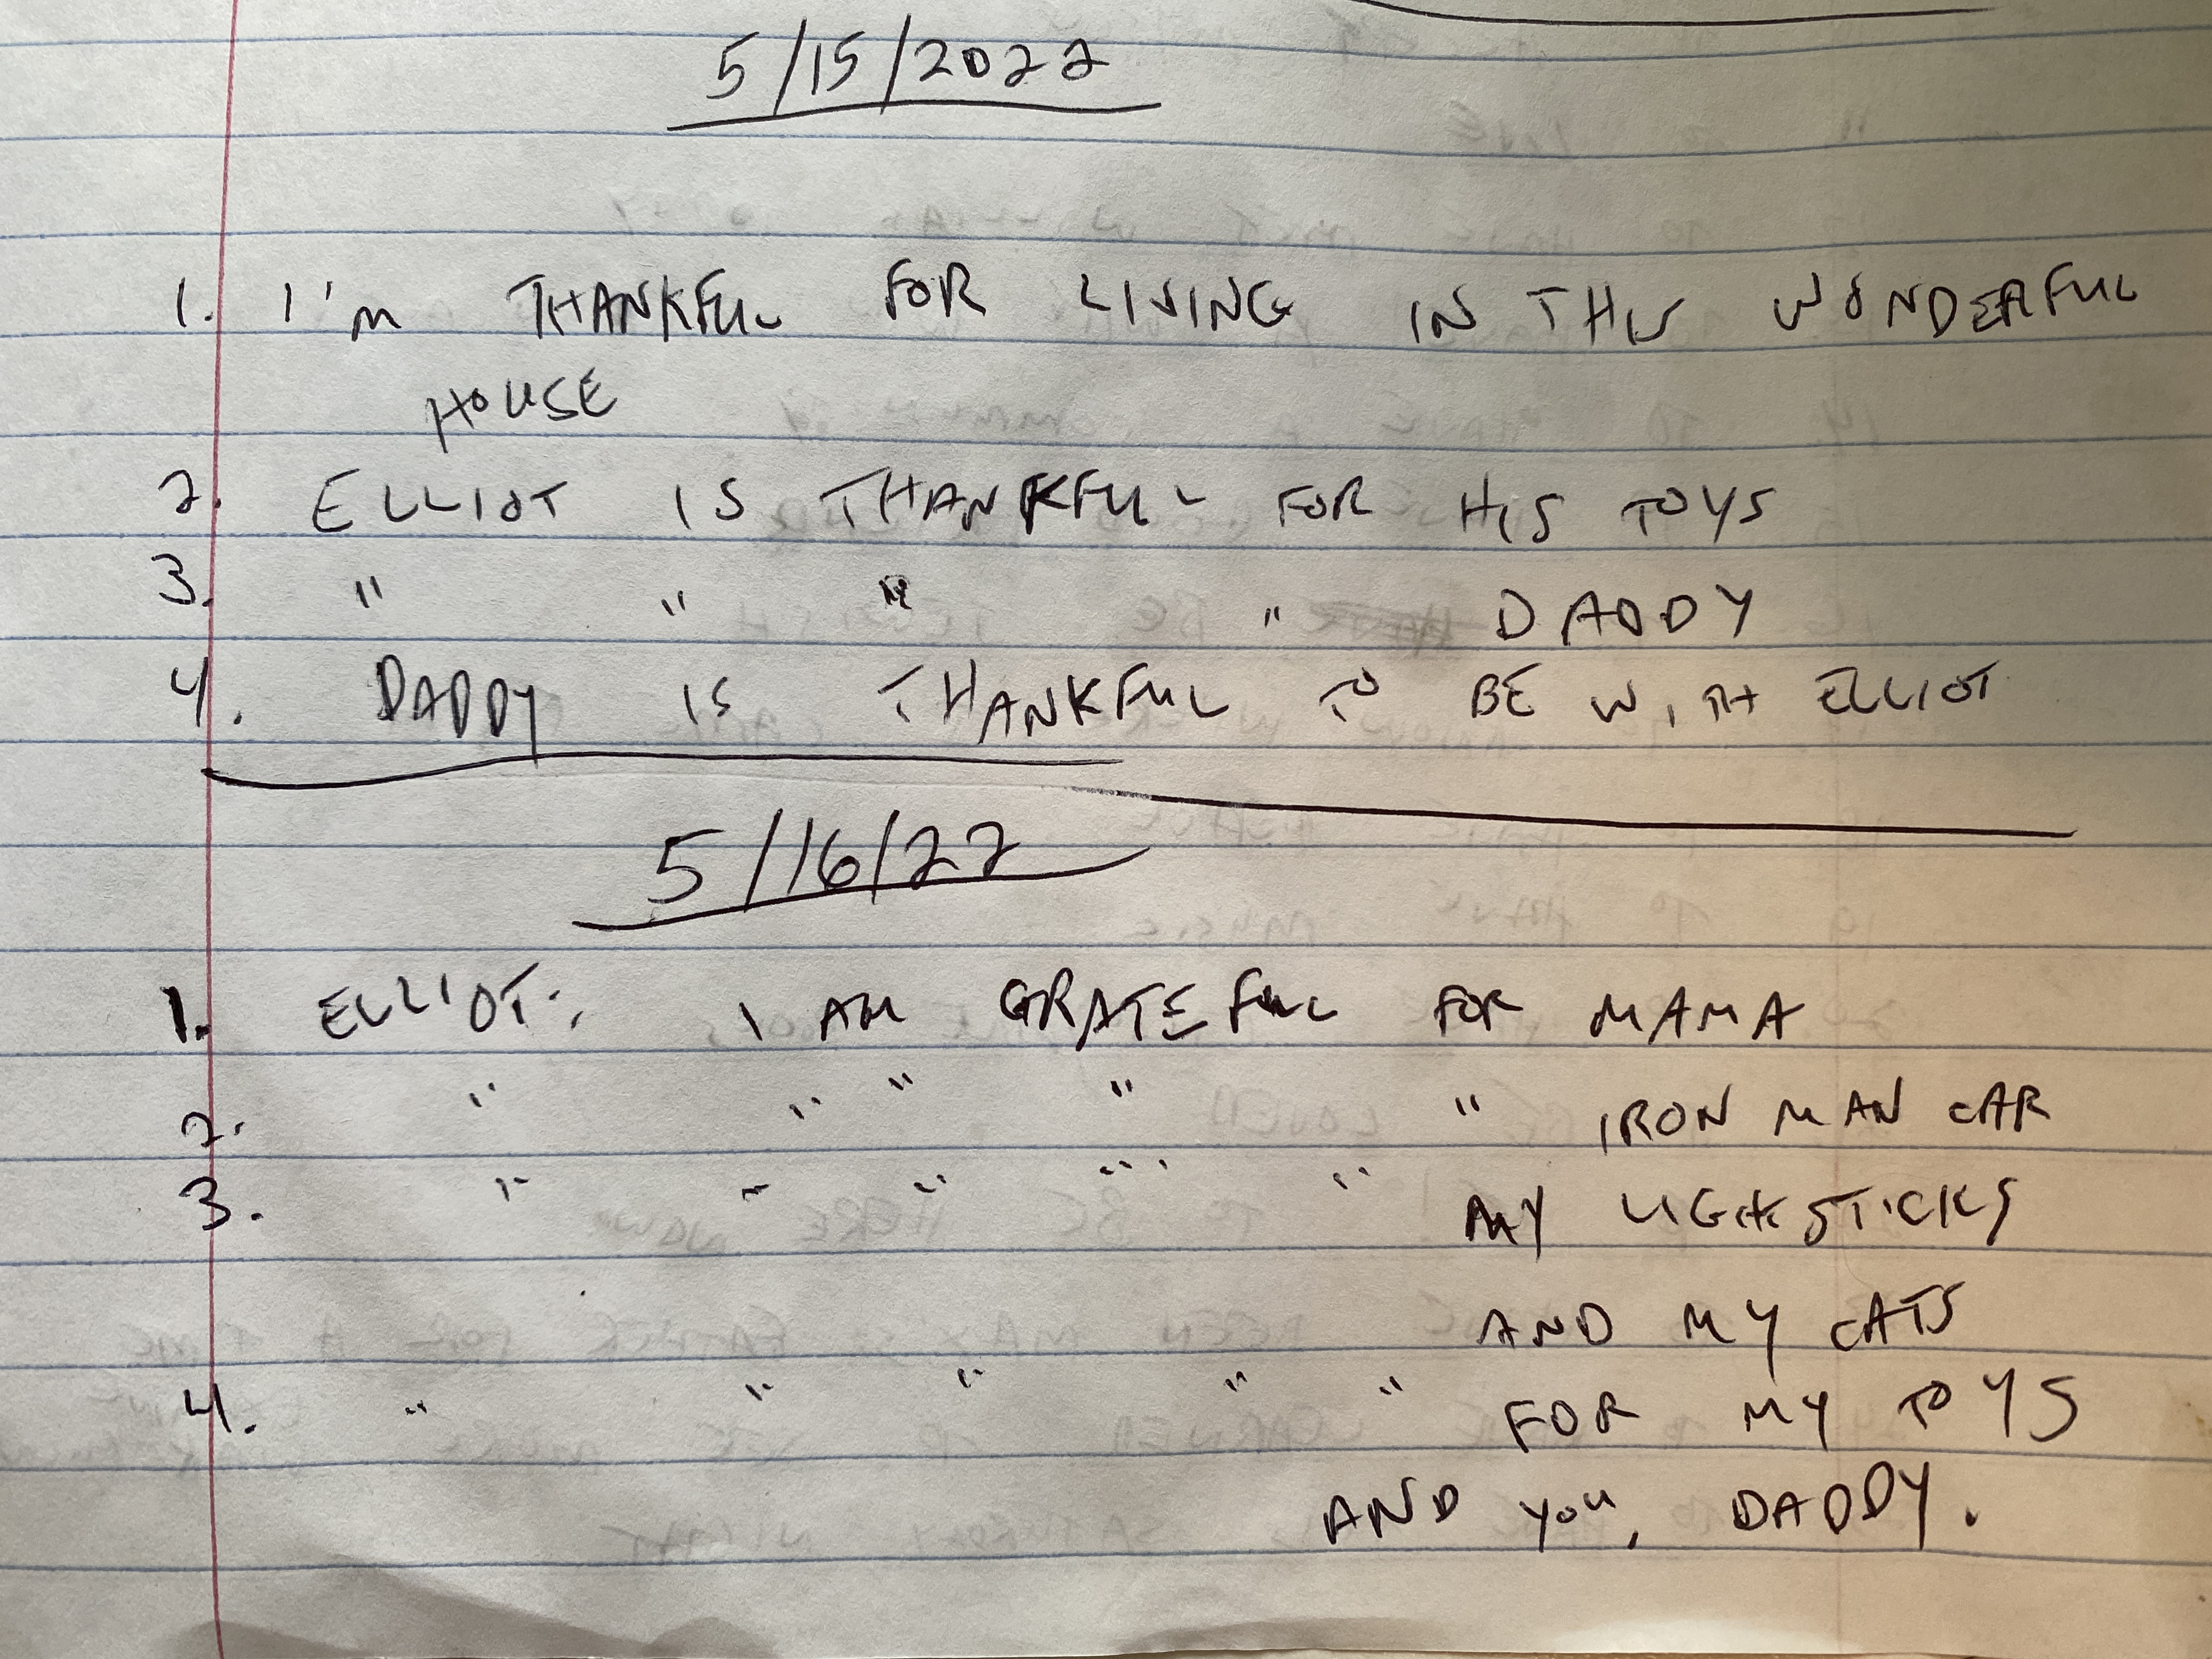 5/15/2022
1. I'm THANKFUL FOR LIVING IN THIS WONDERFUL
HOUSE
2. ELLIOT IS THANKFUL FOR HIS TOYS
3. " " " " DADDY
4. DADDY IS THANKFUL TO BE WITH ELLIOT
5/16/22
1. ELLIOT: I AM GRATEFUL FOR MAMA
2. " " " " " IRON MAN CAR
3. " " " " " MY STICKS
AND MY CATS
4. " " " " " FOR MY TOYS
AND YOU, DADDY.